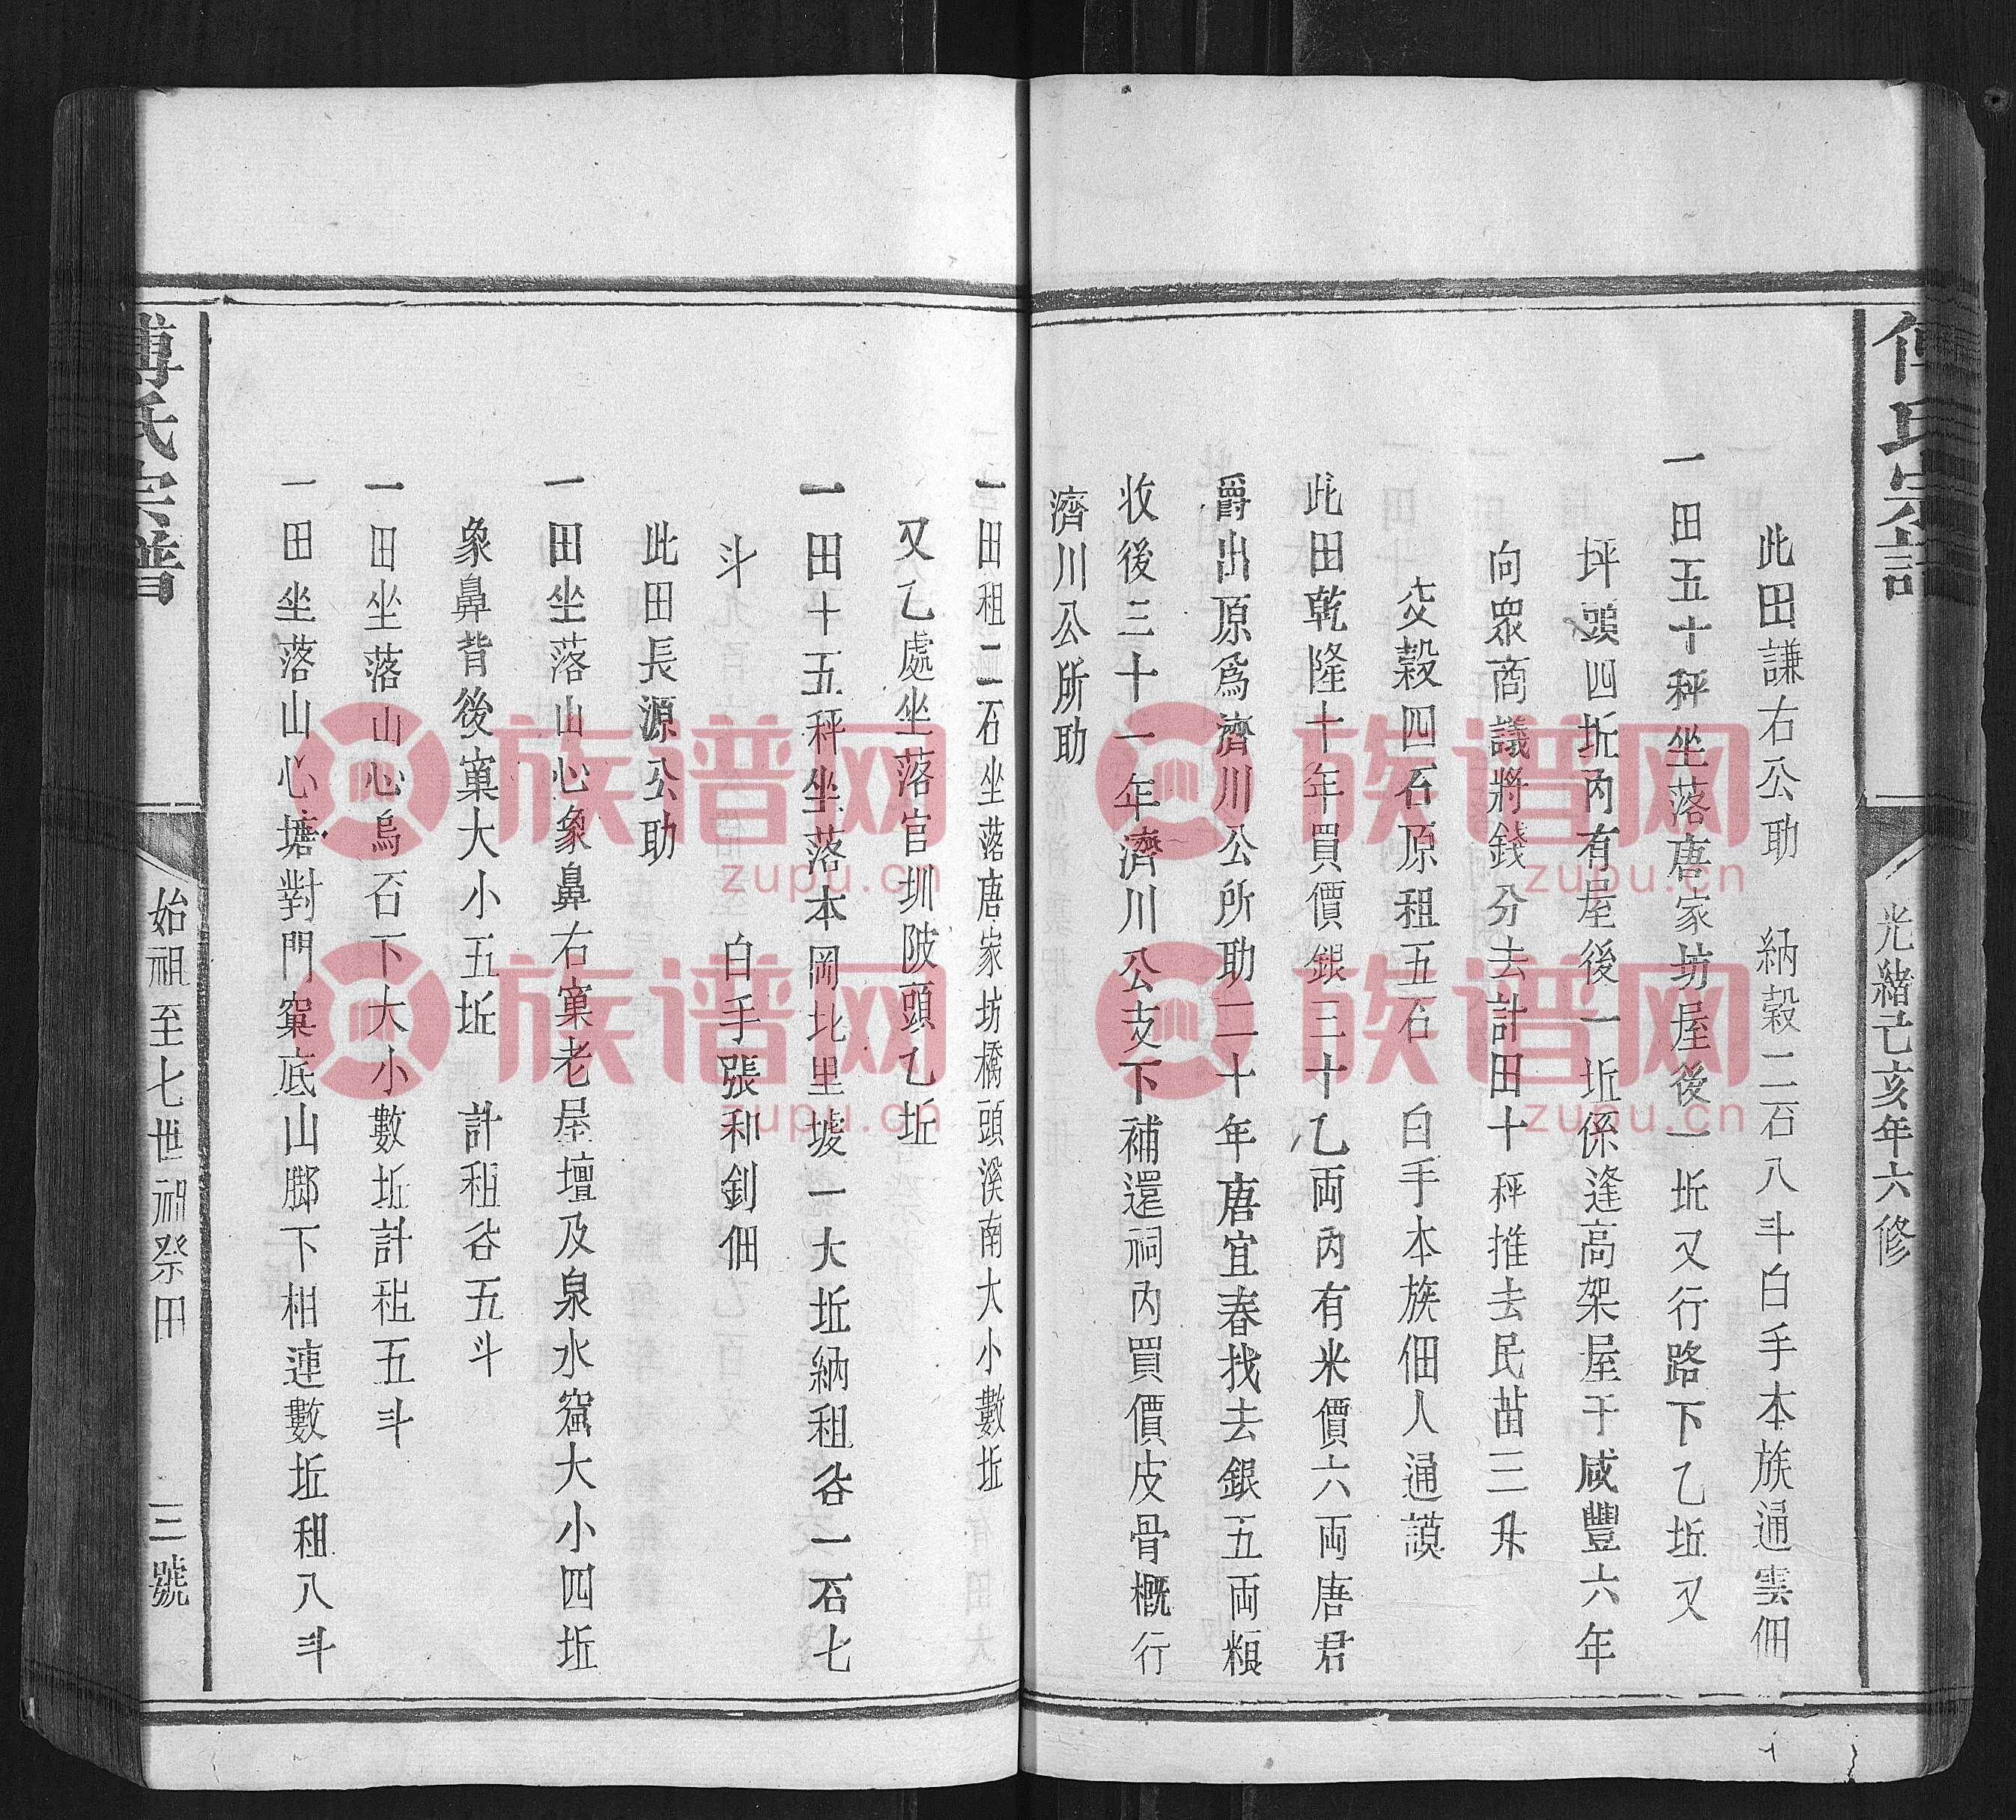 傅氏宗譜
光緒己亥年六修
此田謙右公助　納穀二石八斗白手本族通雲佃
一田五十秤坐落唐家坊屋後一坵又行路下乙坵又
坪頭四坵內有屋後一坵係逢高架屋于咸豐六年
向眾商議將錢分去計田十秤推去民苗三升
交穀四石原租五石　白手本族佃人通謨
此田乾隆十年買價銀三十乙両內有米價六両唐君
爵出原為濟川公所助二十年唐宜春找去銀五両糧
收後三十一年濟川公支下補還祠內買價皮骨概行
濟川公所助
一田租二石坐落唐家坊橋頭溪南大小數坵
又乙處坐落官圳陂頭乙坵
一田十五秤坐落本岡北里壋一大坵納租谷一石七
斗　白手張和釗佃
此田長源公助
一田坐落山心象鼻右窠老屋壇及泉水窟大小四坵
象鼻背後窠大小五坵　計租谷五斗
一田坐落山心烏石下大小數坵計租五斗
一田坐落山心塘對門窠底山腳下相連數坵租八斗
傅氏宗譜
始祖至七世祖祭田
三號
族谱网
zupu.cn
族谱网
zupu.cn
族谱网
zupu.cn
族谱网
zupu.cn